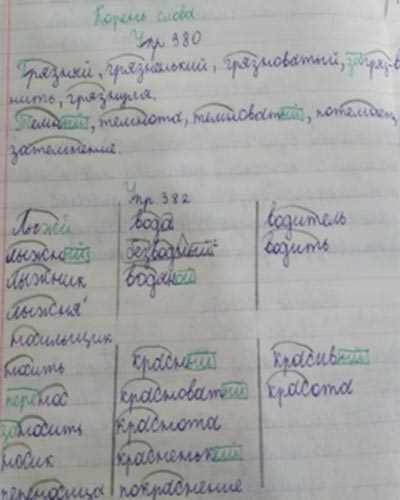 Корень слова
Упр. 380
Грязный, грязненький, грязноватый, загряз-
нить, грязнуля.
Темный, темнота, темноватый, потемнец
затемнение.
Упр 382
Лыжи вода водитель
лыжный безводный водить
лыжник водяной
лыжня
носильщик
носить красный красивый
перенос красноватый красота
заносить краснота
носик красненький
переносица покраснение